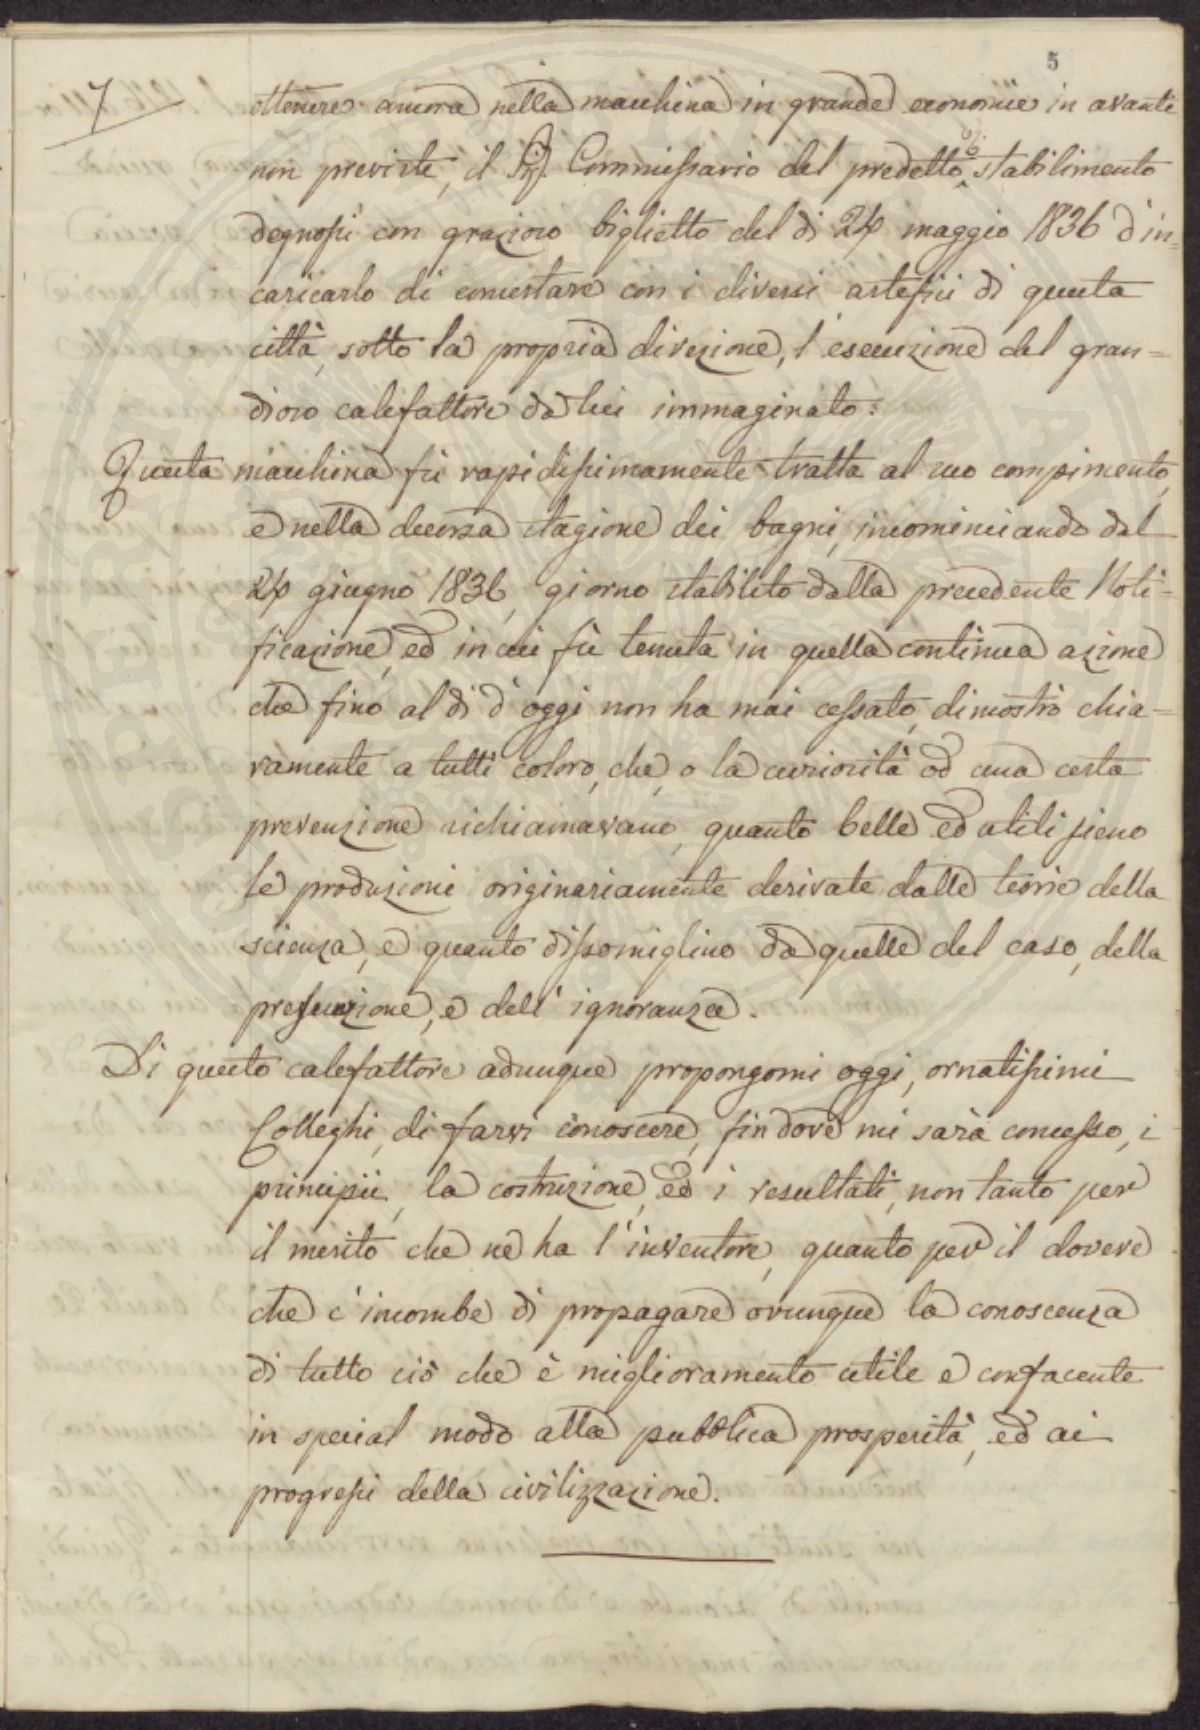 5
7
ottenere ancora nella macchina in grande economie in avanti
non previste, il Sig. Commissario del predetto R. Stabilimento
degnossi con grazioso biglietto del dì 24 maggio 1836 d'in=
caricarlo di concertare con i diversi artefici di questa
città, sotto la propria direzione, l'esecuzione del gran=
dioso calefattore da lui immaginato.
Questa macchina fù rapidissimamente tratta al suo compimento,
e nella decorsa stagione dei bagni, incominciando dal
24 giugno 1836, giorno stabilito dalla precedente Noti=
ficazione, ed in cui fù tenuta in quella continua azione
che fino al dì d'oggi non ha mai cessato, dimostrò chia=
ramente a tutti coloro, che, o la curiosità od una certa
prevenzione richiamavano, quanto belle ed utili sieno
le produzioni originariamente derivate dalle teorie della
scienza, e quanto dissomiglino da quelle del caso, della
presunzione, e dell'ignoranza.
Di questo calefattore adunque propongomi oggi, ornatissimi
Colleghi, di farvi conoscere, fin dove mi sarà concesso, i
principii, la costruzione, ed i resultati, non tanto per
il merito che ne ha l'inventore, quanto per il dovere
che c'incombe di propagare ovunque la conoscenza
di tutto ciò che è miglioramento utile e confacente
in special modo alla pubblica prosperità, ed ai
progressi della civilizzazione.